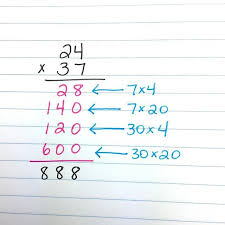 24
× 37
28 ← 7×4
140 ← 7×20
120 ← 30×4
600 ← 30×20
888